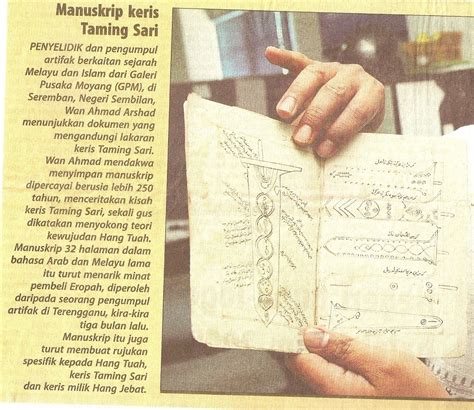 Manuskrip keris
Taming Sari
PENYELIDIK dan pengumpul
artifak berkaitan sejarah
Melayu dan Islam dari Galeri
Pusaka Moyang (GPM), di
Seremban, Negeri Sembilan,
Wan Ahmad Arshad
menunjukkan dokumen yang
mengandungi lakaran
keris Taming Sari.
Wan Ahmad mendakwa
menyimpan manuskrip
dipercayai berusia lebih 250
tahun, menceritakan kisah
keris Taming Sari, sekali gus
dikatakan menyokong teori
kewujudan Hang Tuah.
Manuskrip 32 halaman dalam
bahasa Arab dan Melayu lama
itu turut menarik minat
pembeli Eropah, diperoleh
daripada seorang pengumpul
artifak di Terengganu, kira-kira
tiga bulan lalu.
Manuskrip itu juga
turut membuat rujukan
spesifik kepada Hang Tuah,
keris Taming Sari
dan keris milik Hang Jebat.